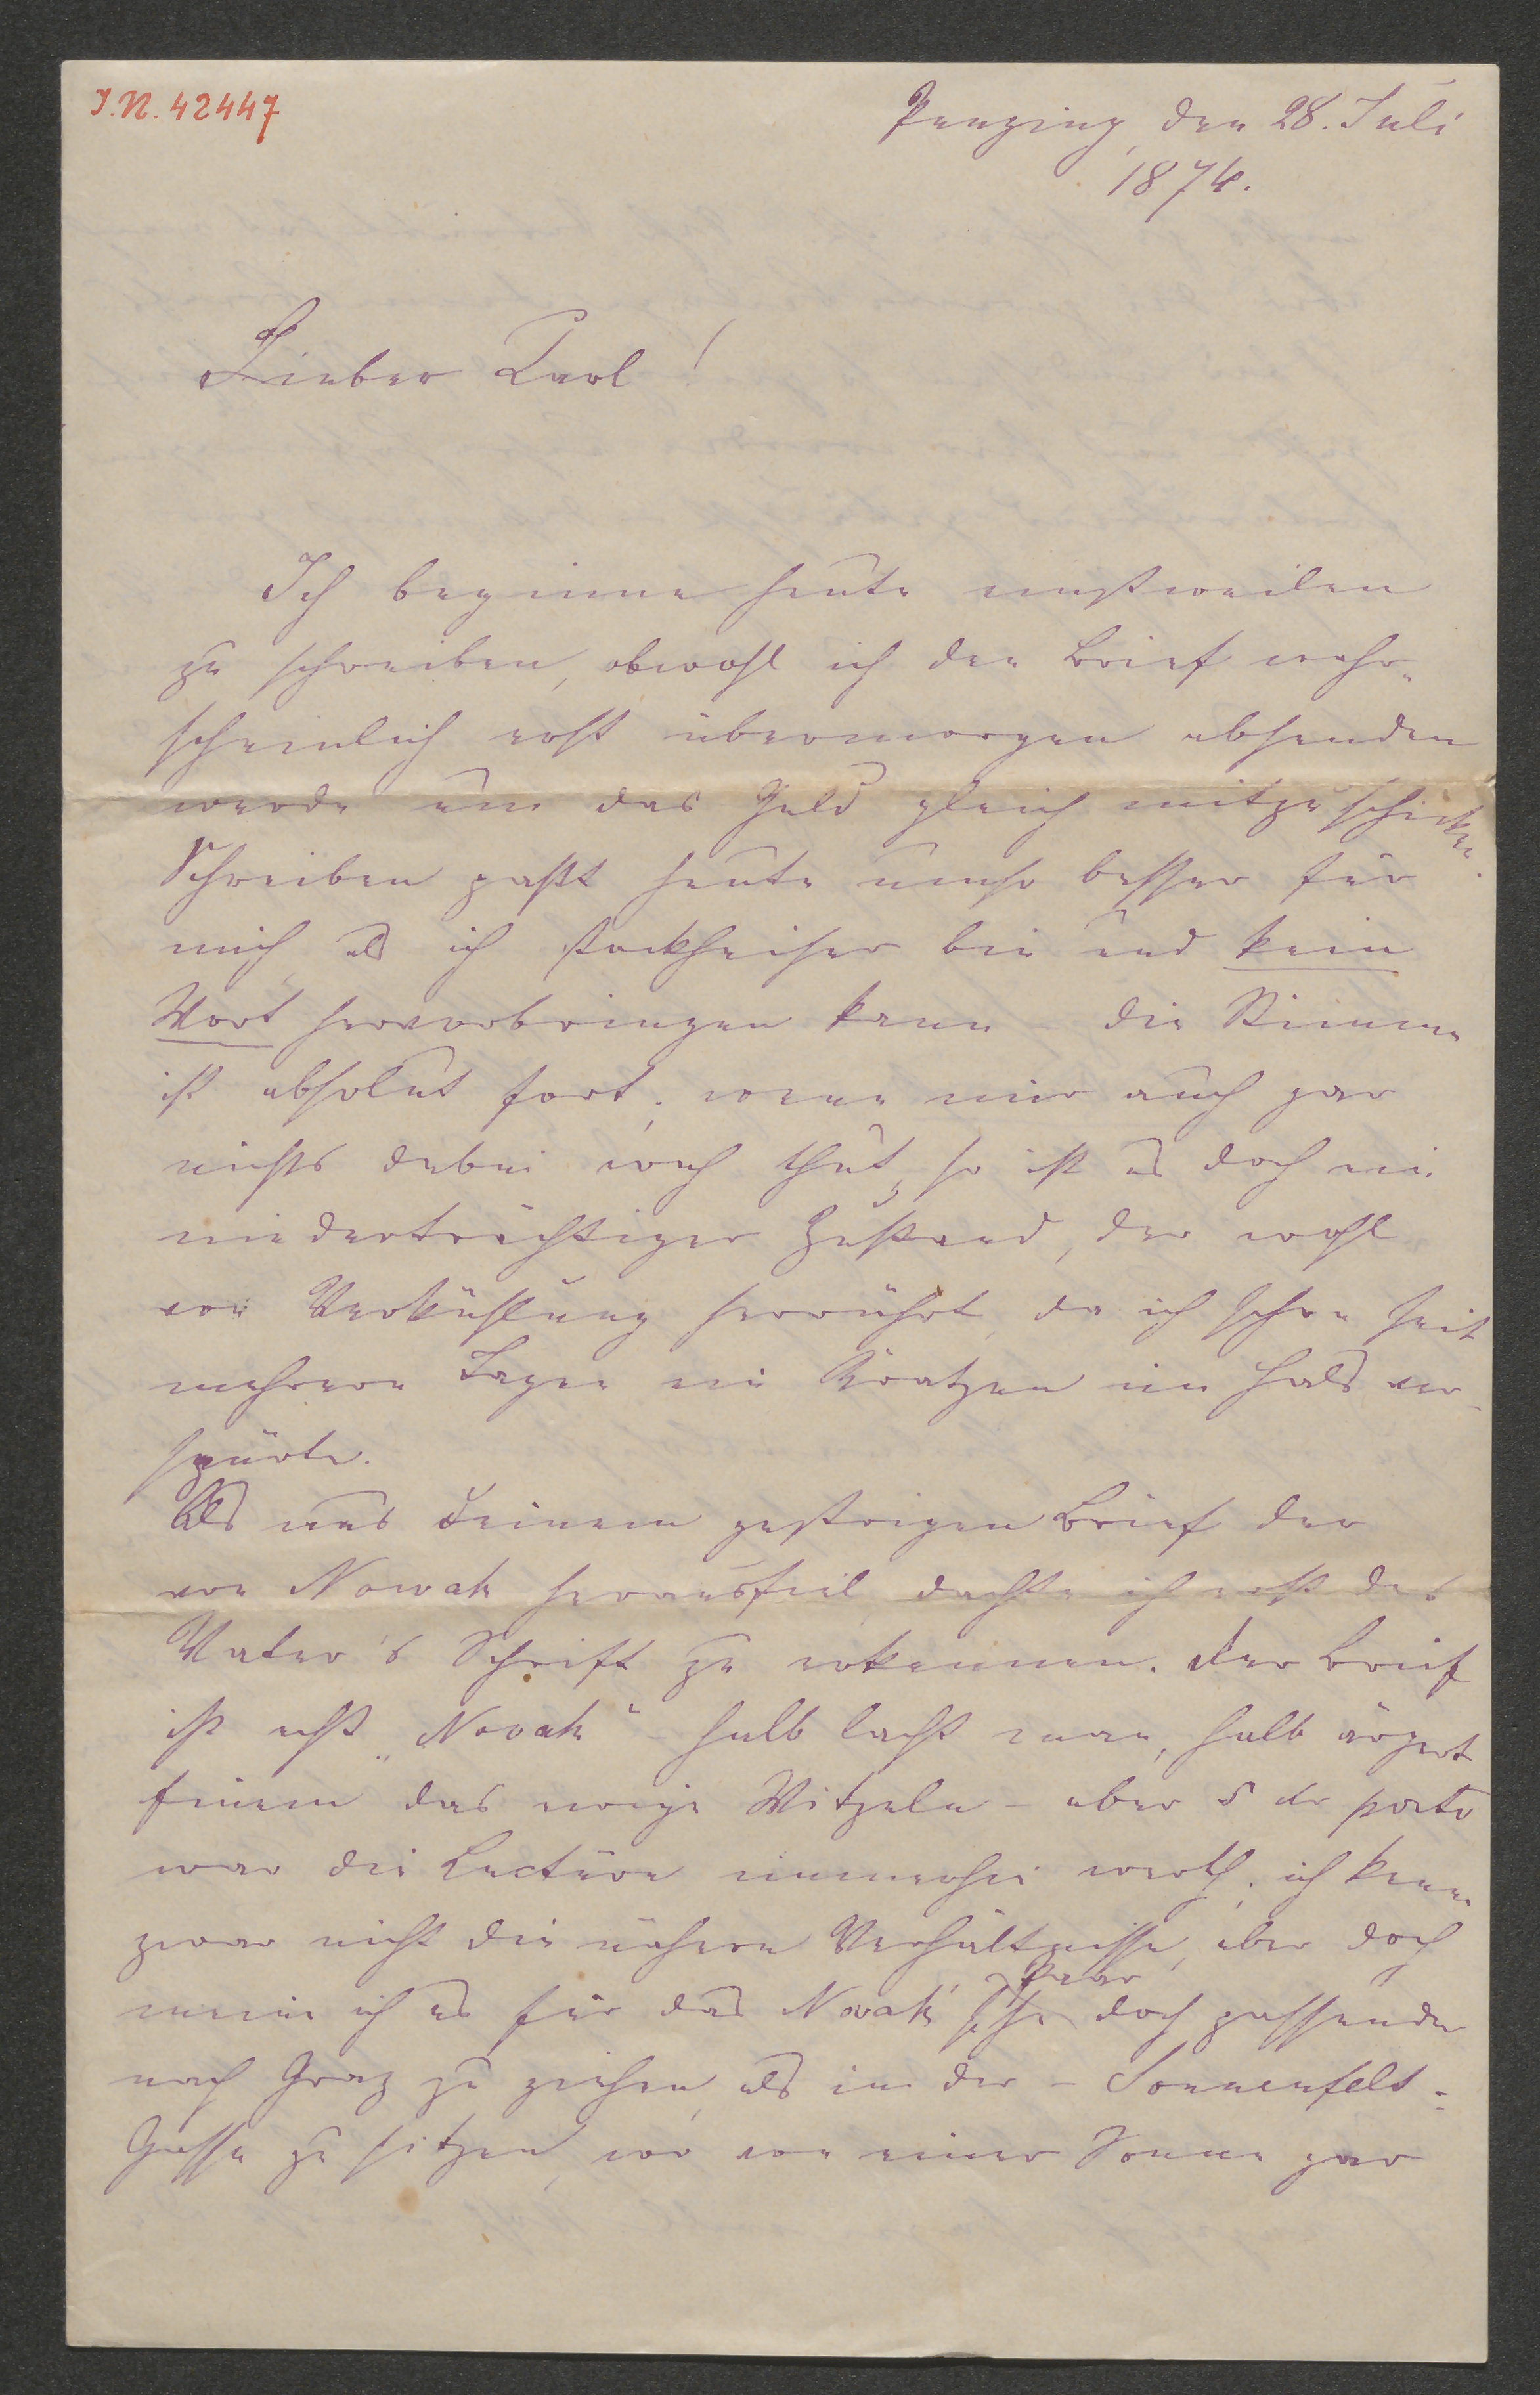 I.N. 42447
Penzing, den 28. Juli
1874.
Lieber Karl!
Ich beginne heute einstweilen
zu schreiben, obwohl ich den Brief wahr-
scheinlich erst übermorgen absenden
werde um das Geld gleich mitzuschicken.
Schreiben paßt heute umso besser für
mich, als ich stockheiser bin und kein
Wort hervorbringen kann – die Stimme
ist absolut fort; wenn mir auch gar
nichts dabei weh thut, so ist es doch ein
niederträchtiger Zustand, der wohl
von Verkühlung herrührt, da ich schon seit
mehrern Tagen ein Kratzen im Hals ver-
spürte.
Als aus Deinem gestrigen Brief der
von Nowak herausfiel, dachte ich erst des
Vater's Schrift zu erkennen. Der Brief
ist echt „Novak" – halb lacht man, halb ärgert
einem das ewige Witzeln – aber 5 kr porto
war die Lectüre immerhin werth; ich kenne
zwar nicht die nähern Verhältnisse, aber doch
meine ich es für das Novak'sche Paar doch passender
nach Graz zu ziehen, als in der – Sonnenfels-
Gasse zu sitzen, wo von einer Sonne gar